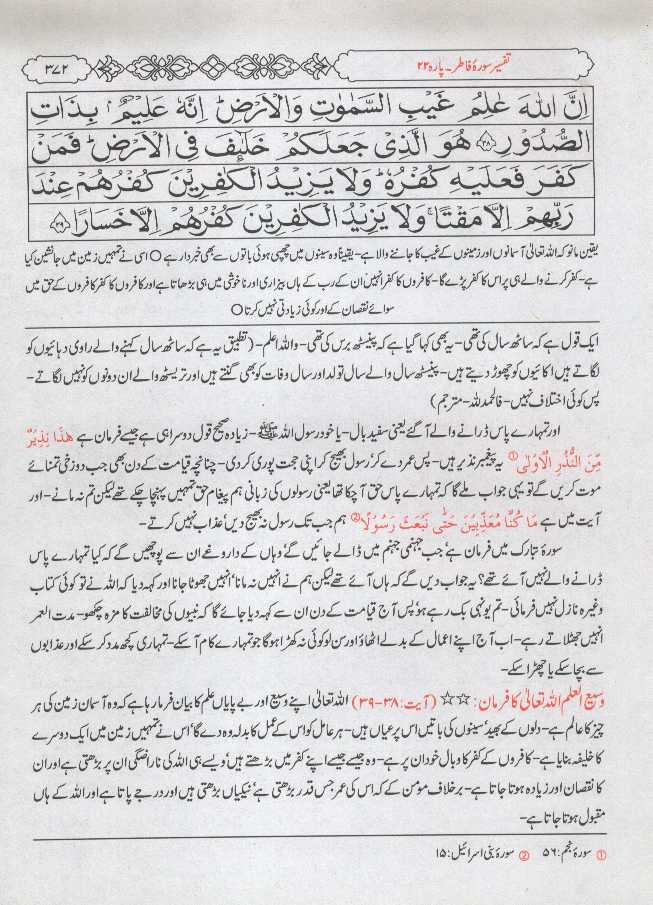 تفسیر سورۂ فاطر۔ پارہ ۲۲
۳۷۲
اِنَّ اللّٰهَ عٰلِمُ غَيْبِ السَّمٰوٰتِ وَالْاَرْضِ ؕ اِنَّهٗ عَلِيْمٌۢ بِذَاتِ
الصُّدُوْرِ ﴿۳۸﴾ هُوَ الَّذِيْ جَعَلَكُمْ خَلٰٓئِفَ فِي الْاَرْضِ ؕ فَمَنْ
كَفَرَ فَعَلَيْهِ كُفْرُهٗ ؕ وَلَا يَزِيْدُ الْكٰفِرِيْنَ كُفْرُهُمْ عِنْدَ
رَبِّهِمْ اِلَّا مَقْتًا ۚ وَلَا يَزِيْدُ الْكٰفِرِيْنَ كُفْرُهُمْ اِلَّا خَسَارًا ﴿۳۹﴾
یقین مانو کہ اللہ تعالیٰ آسمانوں اور زمینوں کے غیب کا جاننے والا ہے- یقیناً وہ سینوں میں چھپی ہوئی باتوں سے بھی خبردار ہے ○ اسی نے تمہیں زمین میں جانشین کیا
ہے- کفر کرنے والے ہی پر اس کا کفر پڑے گا- کافروں کا کفر انہیں ان کے رب کے ہاں بیزاری اور ناخوشی میں ہی بڑھاتا ہے اور کافروں کا کفر کافروں کے حق میں
سوائے نقصان کے اور کوئی زیادتی نہیں کرتا ○
ایک قول ہے کہ ساٹھ سال کی تھی- یہ بھی کہا گیا ہے کہ پینسٹھ برس کی تھی- واللہ اعلم- (تطبیق یہ ہے کہ ساٹھ سال کہنے والے راوی دہائیوں کو
لگاتے ہیں اکائیوں کو چھوڑ دیتے ہیں- پینسٹھ سال والے سال تولد اور سال وفات کو بھی گنتے ہیں اور تریسٹھ والے ان دونوں کو نہیں لگاتے-
پس کوئی اختلاف نہیں- فالحمد للہ- مترجم)
اور تمہارے پاس ڈرانے والے آ گئے یعنی سفید بال- یا خود رسول اللہ ﷺ- زیادہ صحیح قول دوسرا ہی ہے جیسے فرمان ہے هٰذَا نَذِيْرٌ
مِّنَ النُّذُرِ الْاُوْلٰى ① یہ پیغمبر نذیر ہیں- پس عمر دے کر' رسول بھیج کر اپنی حجت پوری کر دی- چنانچہ قیامت کے دن بھی جب دوزخی تمنائے
موت کریں گے تو یہی جواب ملے گا کہ تمہارے پاس حق آ چکا تھا یعنی رسولوں کی زبانی ہم پیغام حق تمہیں پہنچا چکے تھے لیکن تم نہ مانے- اور
آیت میں ہے مَا كُنَّا مُعَذِّبِيْنَ حَتّٰى نَبْعَثَ رَسُوْلًا ② ہم جب تک رسول نہ بھیج دیں' عذاب نہیں کرتے-
سورۂ تبارک میں فرمان ہے' جب جہنمی جہنم میں ڈالے جائیں گے' وہاں کے داروغے ان سے پوچھیں گے کہ کیا تمہارے پاس
ڈرانے والے نہیں آئے تھے؟ یہ جواب دیں گے کہ ہاں آئے تھے لیکن ہم نے انہیں نہ مانا' انہیں جھوٹا جانا اور کہہ دیا کہ اللہ نے تو کوئی کتاب
وغیرہ نازل نہیں فرمائی- تم یونہی بک رہے ہو' پس آج قیامت کے دن ان سے کہہ دیا جائے گا کہ نبیوں کی مخالفت کا مزہ چکھو- مدت العمر
انہیں جھٹلاتے رہے- اب آج اپنے اعمال کے بدلے اٹھاؤ اور سن لو کوئی نہ کھڑا ہو گا جو تمہارے کام آ سکے- تمہاری کچھ مدد کر سکے اور عذابوں
سے بچا سکے یا چھڑا سکے-
وسیع العلم اللہ تعالیٰ کا فرمان: ☆☆ (آیت: ۳۸-۳۹) اللہ تعالیٰ اپنے وسیع اور بے پایاں علم کا بیان فرما رہا ہے کہ وہ آسمان زمین کی ہر
چیز کا عالم ہے- دلوں کے بھید' سینوں کی باتیں اس پر عیاں ہیں- ہر عامل کو اس کے عمل کا بدلہ وہ دے گا' اس نے تمہیں زمین میں ایک دوسرے
کا خلیفہ بنایا ہے- کافروں کے کفر کا وبال خود ان پر ہے- وہ جیسے جیسے اپنے کفر میں بڑھتے ہیں' ویسے ہی اللہ کی ناراضگی ان پر بڑھتی ہے اور ان
کا نقصان اور زیادہ ہوتا جاتا ہے- برخلاف مومن کے کہ اس کی عمر جس قدر بڑھتی ہے' نیکیاں بڑھتی ہیں اور درجے پاتا ہے اور اللہ کے ہاں
مقبول ہوتا جاتا ہے-
① سورۂ نجم: ۵۶ ② سورۂ بنی اسرائیل: ۱۵